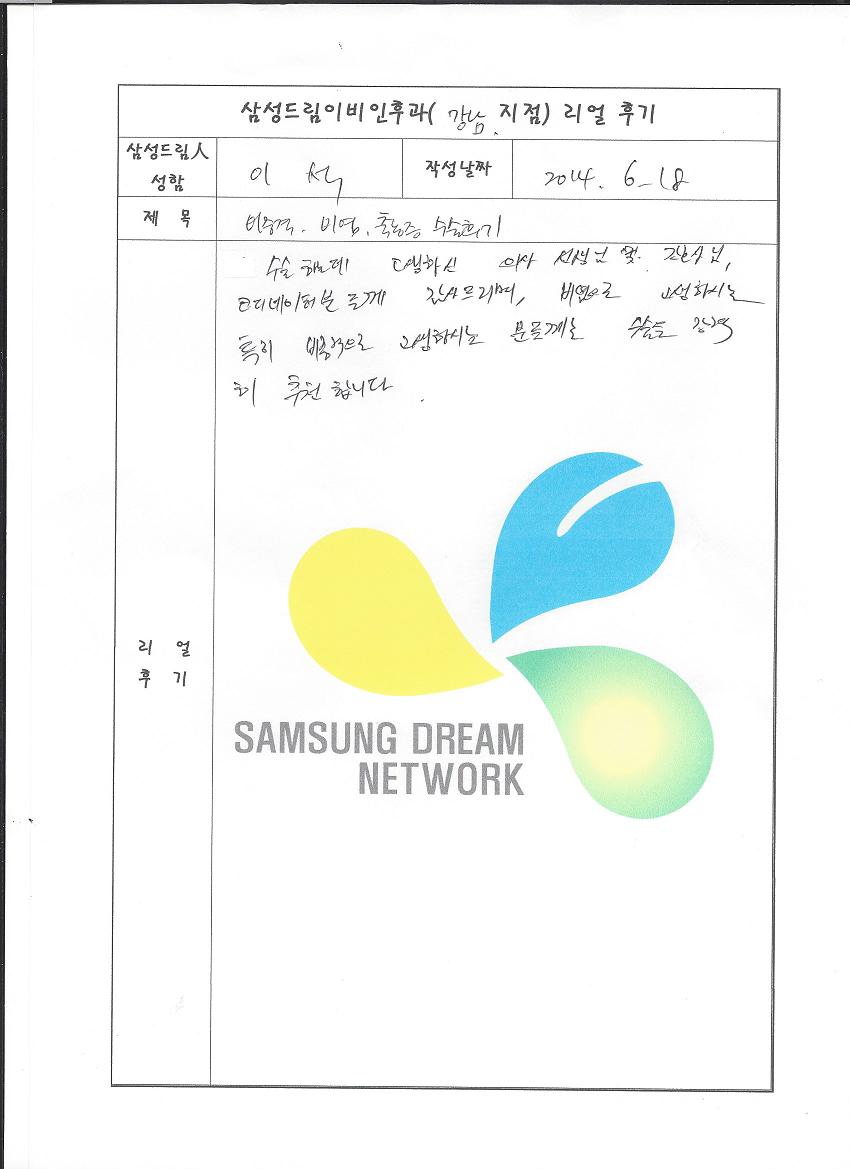 삼성드림이비인후과( 강남 지점) 리얼 후기
삼성드림人
성함
이 석
작성날짜
2014. 6-18
제 목
비중격. 비염. 축농증 수술후기
수술 하는데 고생하신 의사 선생님 및 간호사님,
코디네이터분들께 감사드리며, 비염으로 고생하시는
특히 비중격으로 고생하시는 분들께는 수술을 강력
히 추천 합니다.
리 얼
후 기
SAMSUNG DREAM
NETWORK